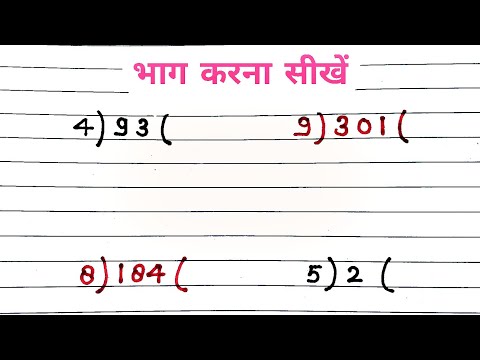 भाग करना सीखें
4)93( 9)301(
8)184( 5)2(